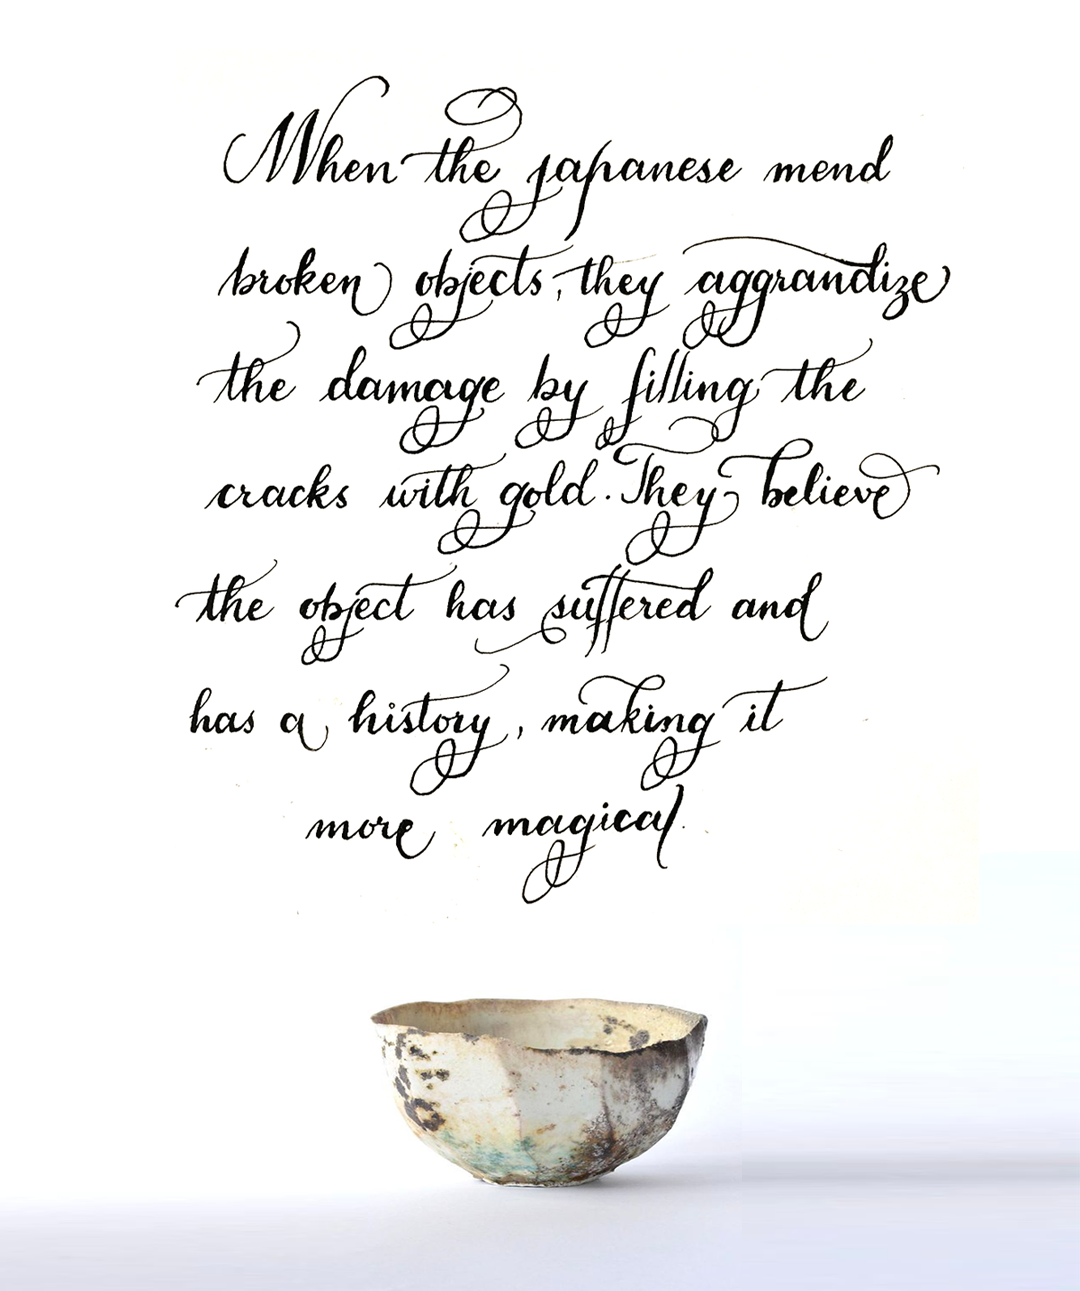 When the japanese mend
broken objects, they aggrandize
the damage by filling the
cracks with gold. They believe
the object has suffered and
has a history, making it
more magical.